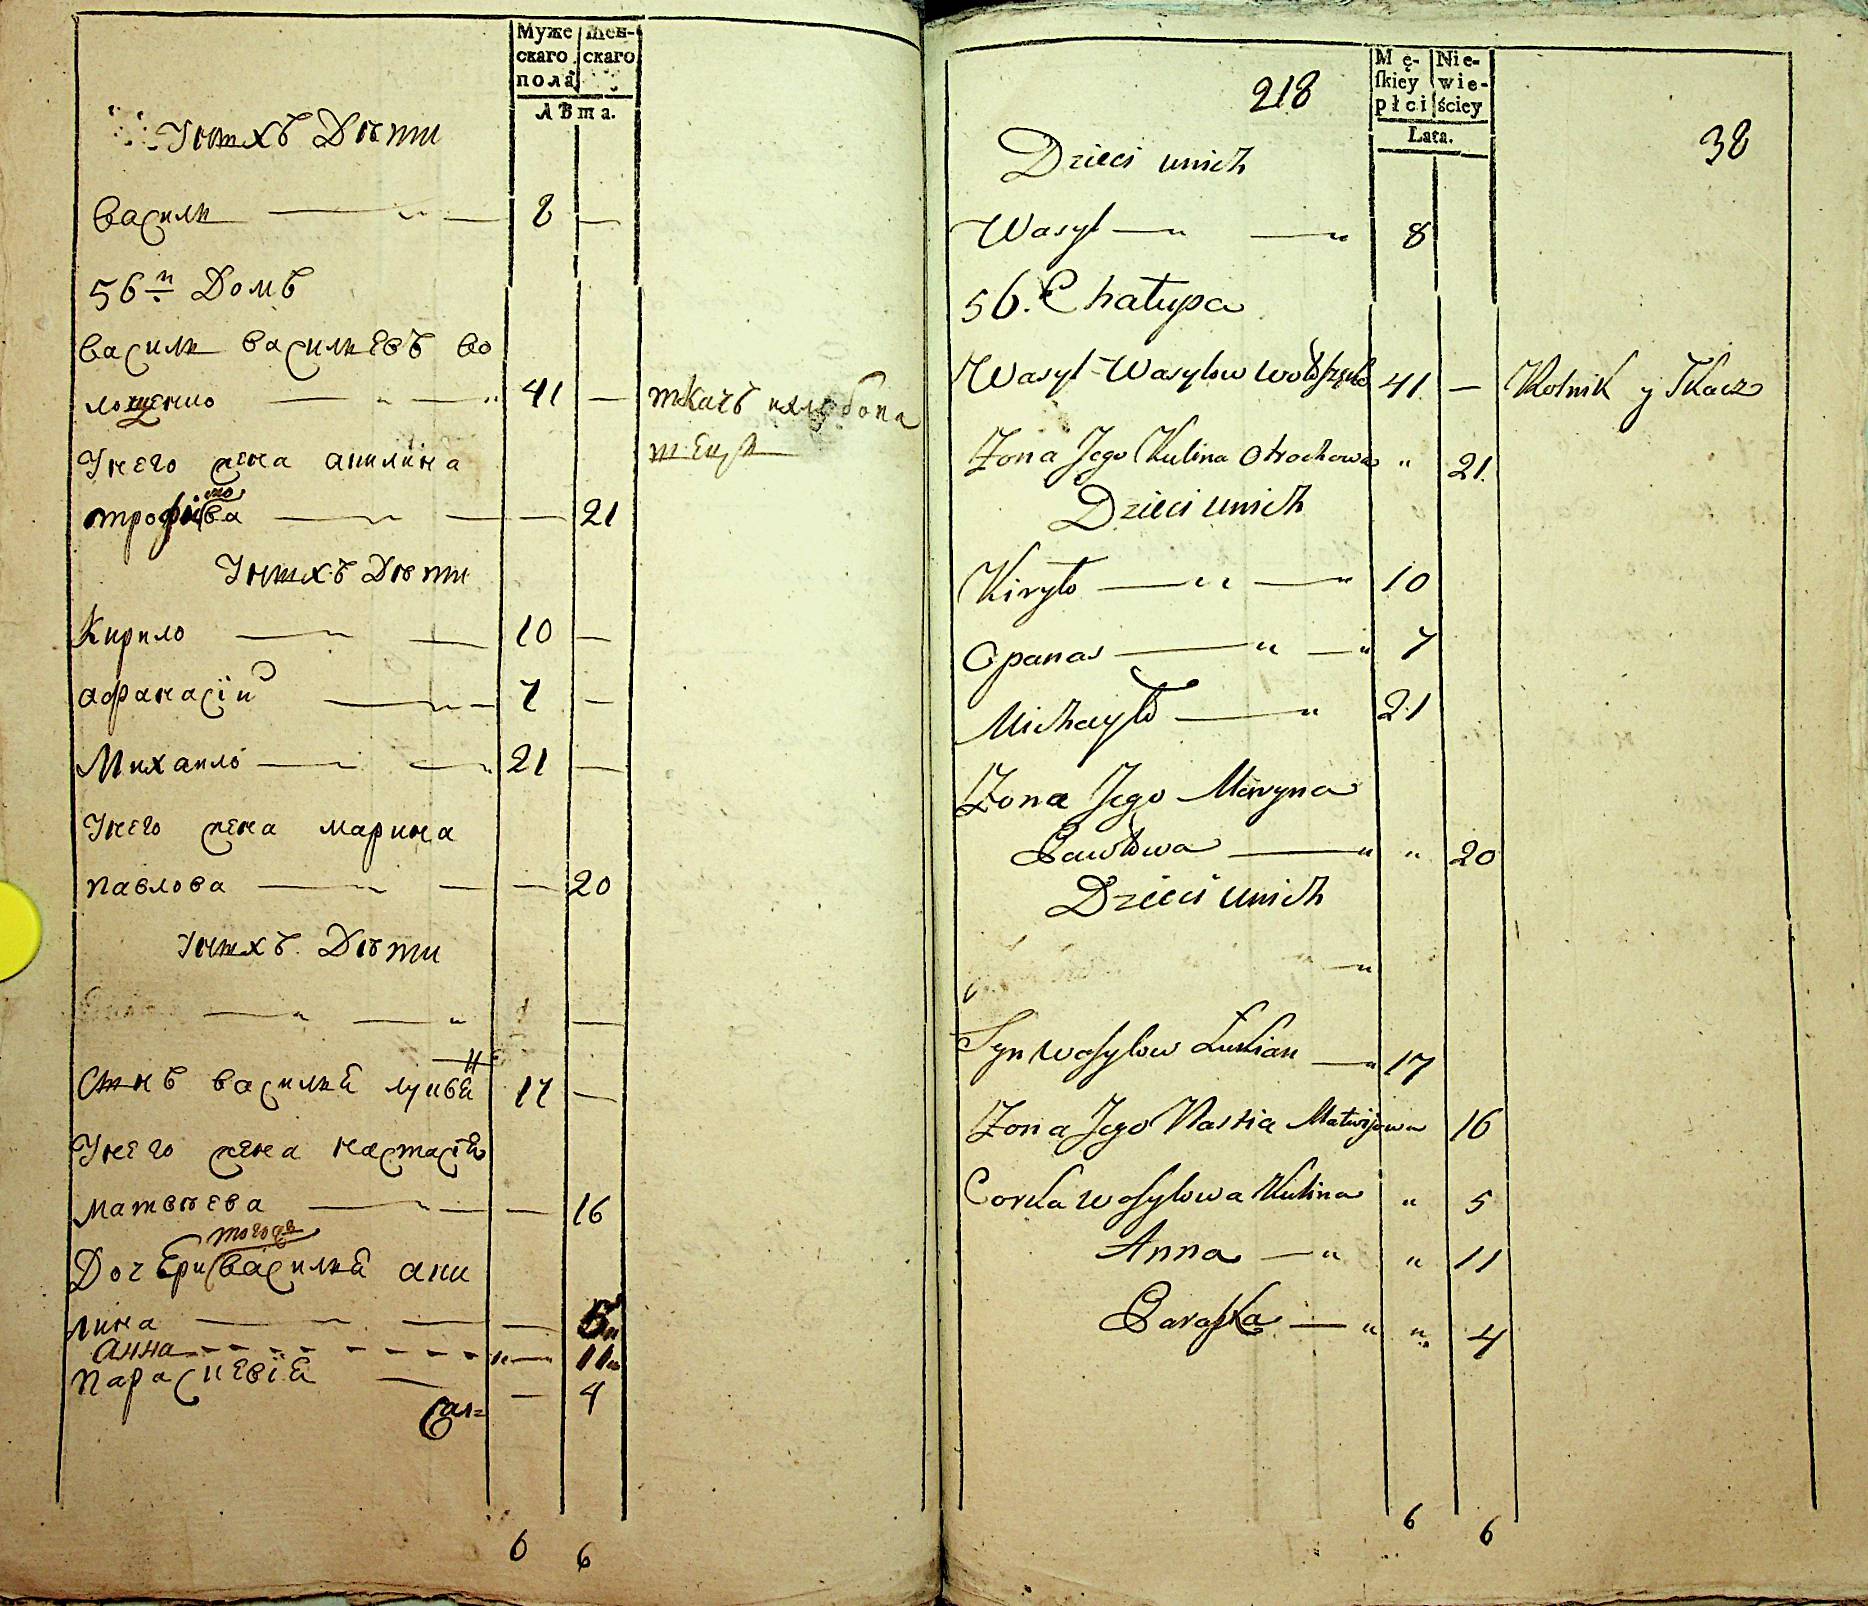 Муже Жен-
скаго скаго
пола
Лѣта.
У нихъ Дѣти
Васили 8
56й Домъ
Васили Васильевъ Во
лощенко 41 ткачъ и хлебопа
шецъ
У него жена акилина
трофимова 21
У нихъ Дѣти
Кирило 10
афанасій 7
Михаило 21
У него жена марина
павлова 20
У нихъ Дѣти
1
Сынъ василия лукья 17
У него жена настасия
матвѣева 16
Дочери тогожъ василия аки
лина 5
анна 11
параскевия 4
6 6
218
Mę- Nie-
skiey wie-
płci ściey
Lata.
38
Dzieci unich
Wasyl 8
56. Chałupa
Wasyl Wasylow Wołoszenko 41 Rolnik y Tkacz
Zona Jego Kulina Otrochowa 21
Dzieci unich
Kiryło 10
Opanas 7
Michayło 21
Zona Jego Maryna
Pawłowa 20
Dzieci unich
Syn Wasylow Łukian 17
Zona Jego Nastia Matwijowa 16
Corka Wasylowa Kulina 5
Anna 11
Paraska 4
6 6